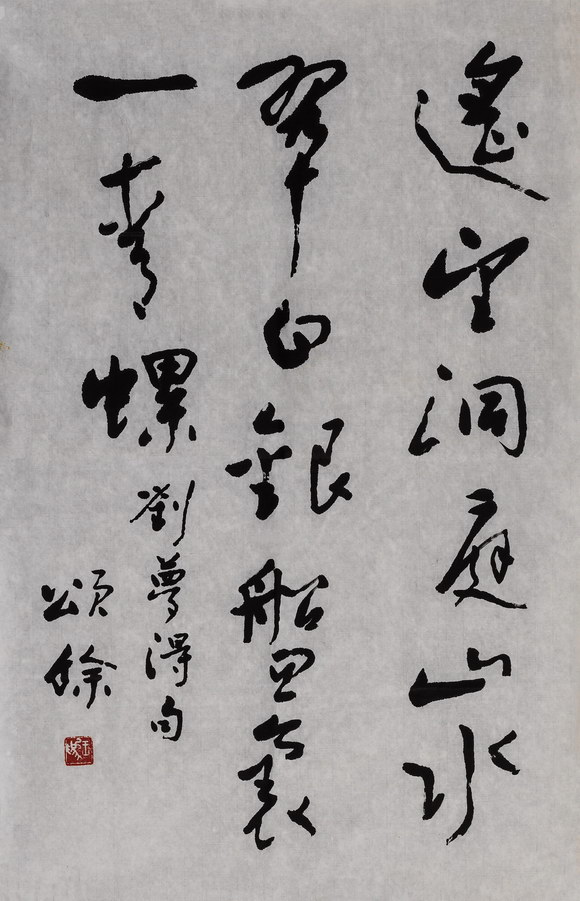 遙望洞庭山水
翠白銀盤裏
一青螺 劉夢得句
頌餘